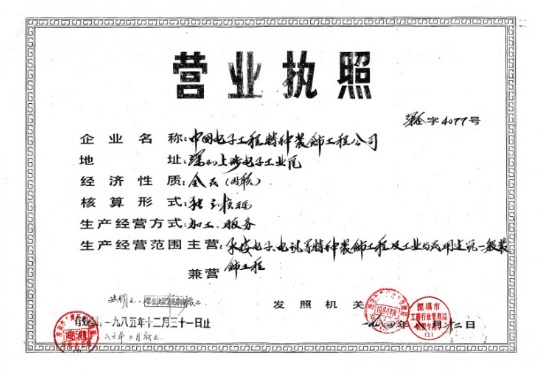 营业执照
字4077号
企业名称:中国电子工程特种装饰工程公司
地址:深圳上步电子工业区
经济性质:全民(内联)
核算形式:独立核算
生产经营方式:加工、服务
生产经营范围 主营:承接电子、电讯等特种装饰工程及工业与民用建筑一般装
兼营 饰工程
发照机关
一九八五年十二月三十一日止
深圳市